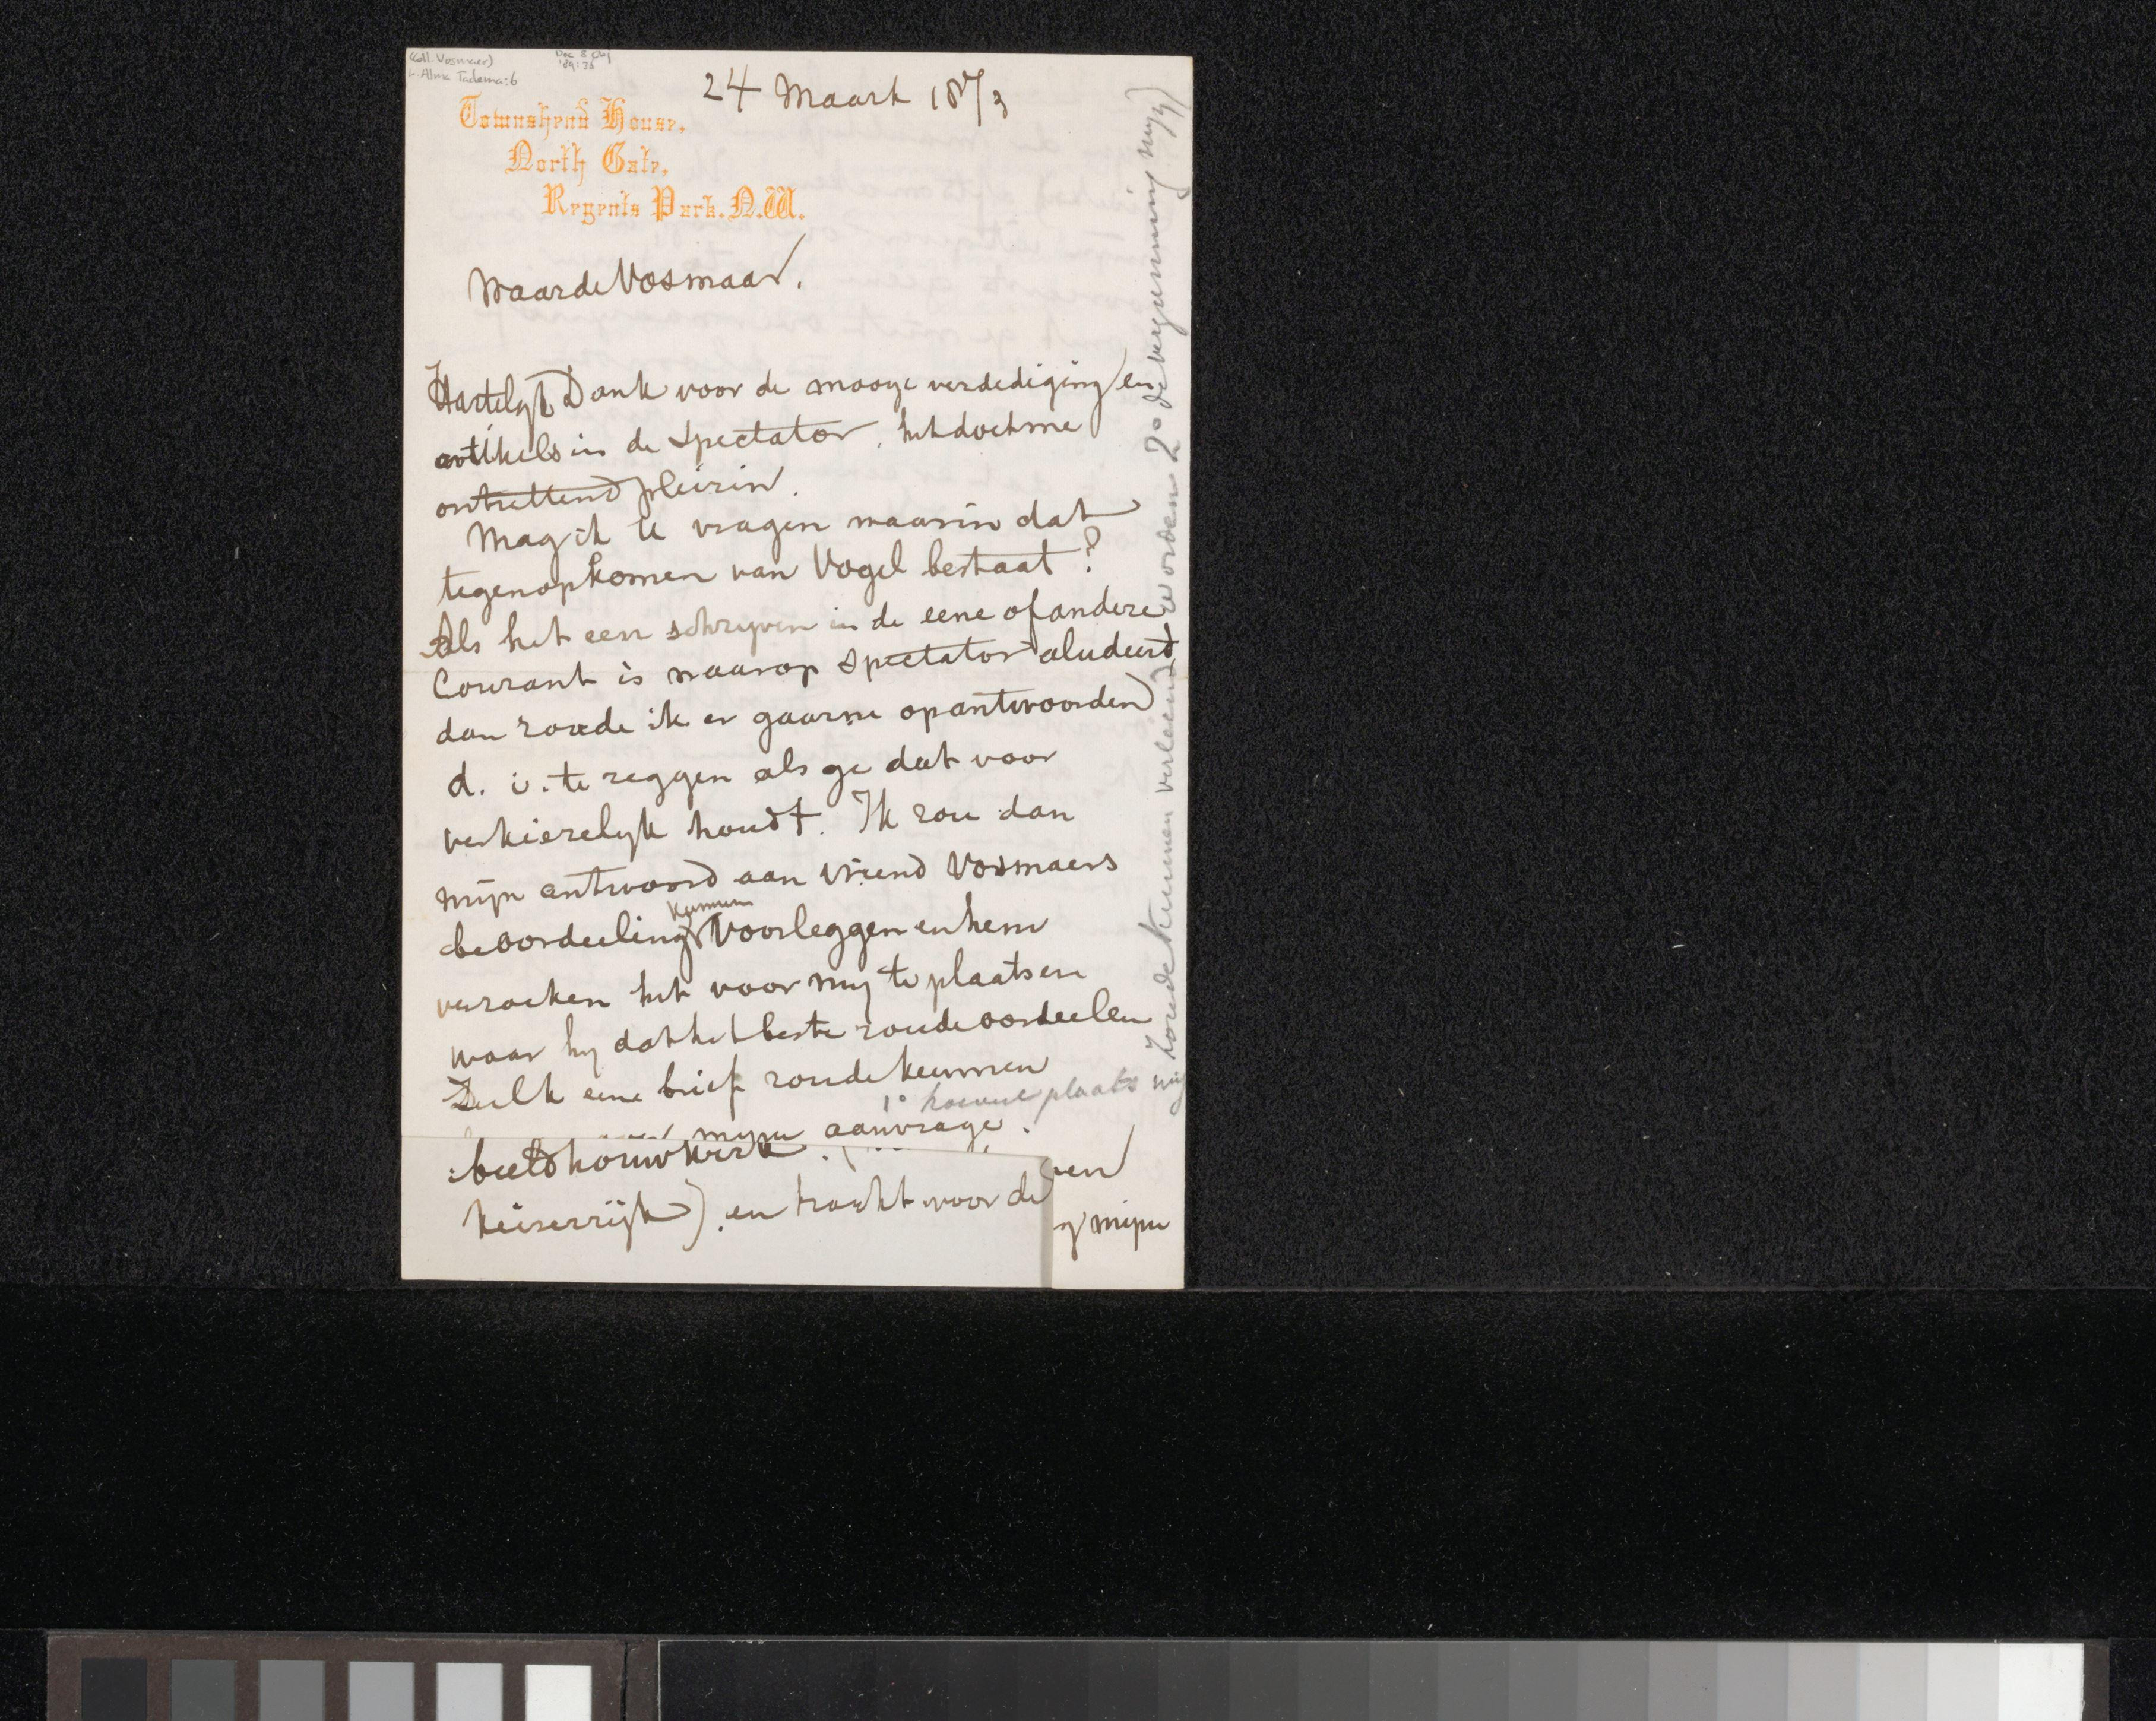 (coll. Vosmaer)
L. Alma Tadema: 6
24 Maart 1873
Townshend House,
North Gate,
Regents Park. N.W.
Waarde Vosmaer.
Hartelijk Dank voor de mooye verdediging en
artikels in de Spectator, het doet me
ontzettend pleizier.
Mag ik U vragen waarin dat
tegenopkomen van Vogel bestaat?
Als het een schrijven in de eene of andere
Courant is waarop Spectator aludeert
dan zoude ik er gaarne op antwoorden
d. i. te zeggen als ge dat voor
verkiezelyk houdt. Ik zou dan
mijn antwoord aan vriend Vosmaers
beoordeeling kunnen voorleggen en hem
verzoeken het voor my te plaatsen
waar hy dat het beste zoude oordeelen
Zulk eene brief zoude kunnen
mijne aanvrage.
1° hoeveel plaats mij
zoude kunnen verleend worden 2° de vergunning mijn
beeldhouwwerk
keizerrijk) en tracht voor de
mijne